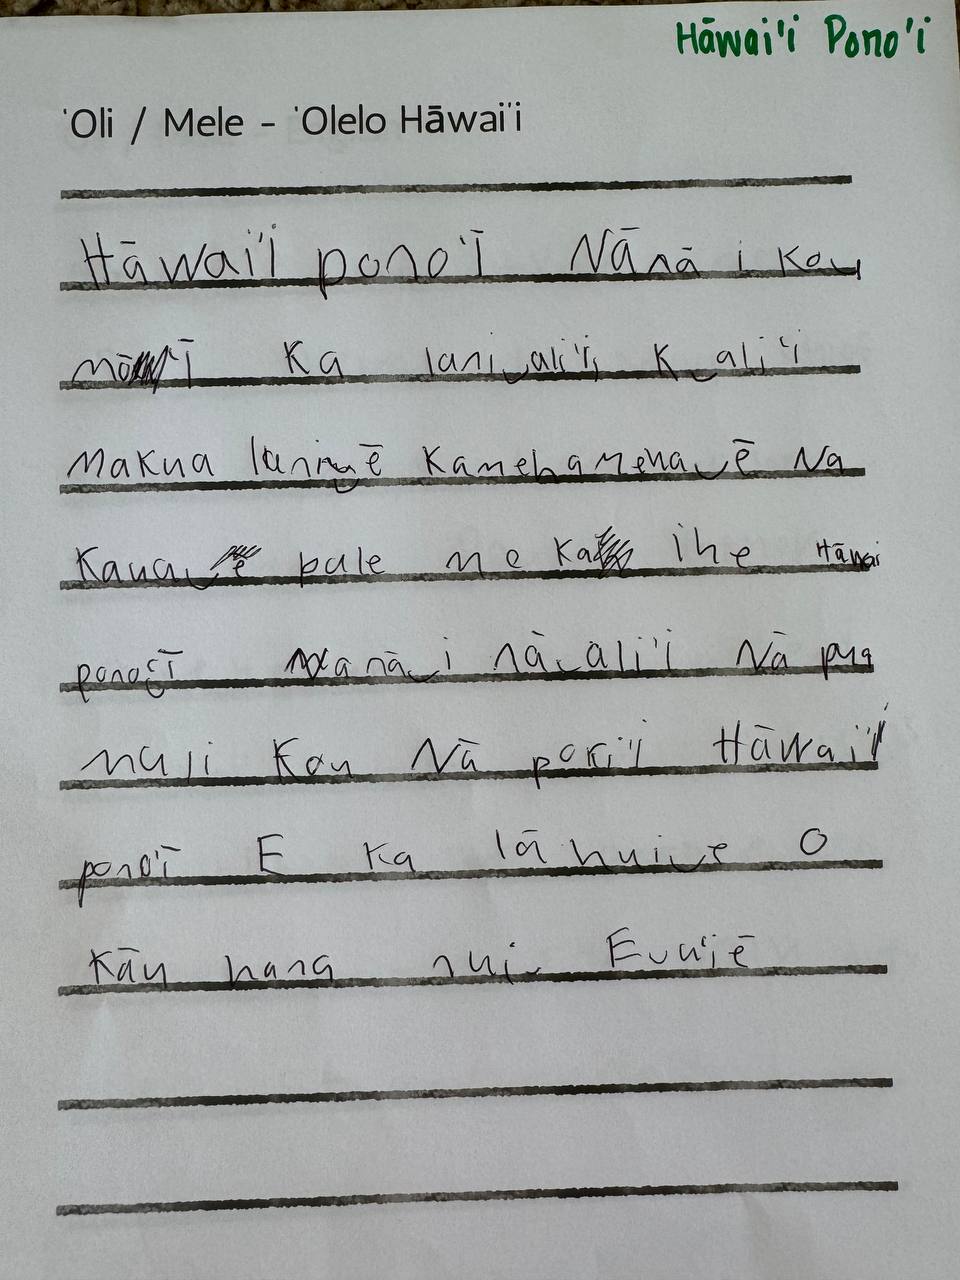 Hāwai'i Pono'i
'Oli / Mele - 'Olelo Hāwai'i
Hāwai'i pono'ī Nānā i Kou
mō'ī Ka lani‿ali'i, K‿ali'i
Makua lani‿ē Kamehameha‿ē Na
Kaua‿e pale me Ka ihe Hāwai
pono'ī nanā‿i nā‿ali'i Nā pua
muli Kou Nā poki'i Hāwai'i
pono'ī E Ka lāhui‿e O
Kāu hana nui‿ E‿u'i ē